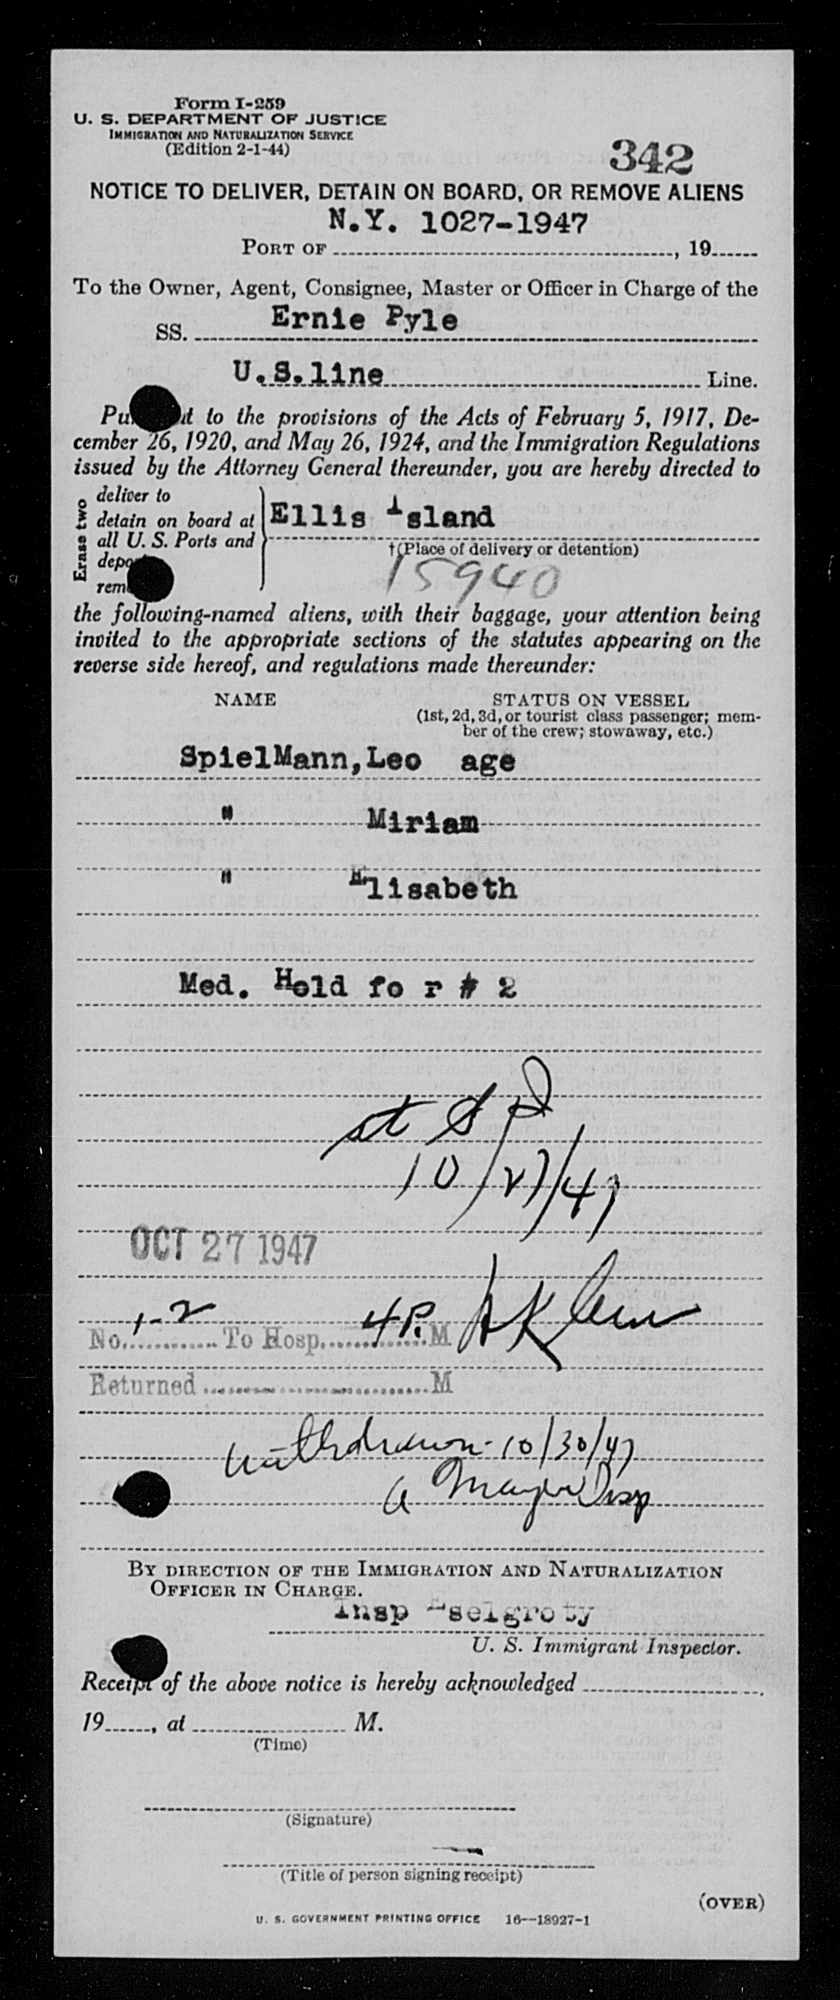 Form I-259
U. S. DEPARTMENT OF JUSTICE
IMMIGRATION AND NATURALIZATION SERVICE
(Edition 2-1-44)
342
NOTICE TO DELIVER, DETAIN ON BOARD, OR REMOVE ALIENS
N.Y. 1027-1947
PORT OF , 19
To the Owner, Agent, Consignee, Master or Officer in Charge of the
SS. Ernie Pyle
U.S.line Line.
to the provisions of the Acts of February 5, 1917, De-
cember 26, 1920, and May 26, 1924, and the Immigration Regulations
issued by the Attorney General thereunder, you are hereby directed to
Erase two
deliver to
detain on board at
all U. S. Ports and
Ellis Island
†(Place of delivery or detention)
15940
the following-named aliens, with their baggage, your attention being
invited to the appropriate sections of the statutes appearing on the
reverse side hereof, and regulations made thereunder:
NAME STATUS ON VESSEL
(1st, 2d, 3d, or tourist class passenger; mem-
ber of the crew; stowaway, etc.)
SpielMann,Leo age
" Miriam
" Elisabeth
Med. Hold fo r # 2
10/27/47
OCT 27 1947
No. 1-2 To Hosp. 4P. M
Returned M
withdrawn 10/30/47
BY DIRECTION OF THE IMMIGRATION AND NATURALIZATION
OFFICER IN CHARGE.
Insp
U. S. Immigrant Inspector.
Receipt of the above notice is hereby acknowledged
19 , at M.
(Time)
(Signature)
(Title of person signing receipt)
(OVER)
U. S. GOVERNMENT PRINTING OFFICE 16—18927-1